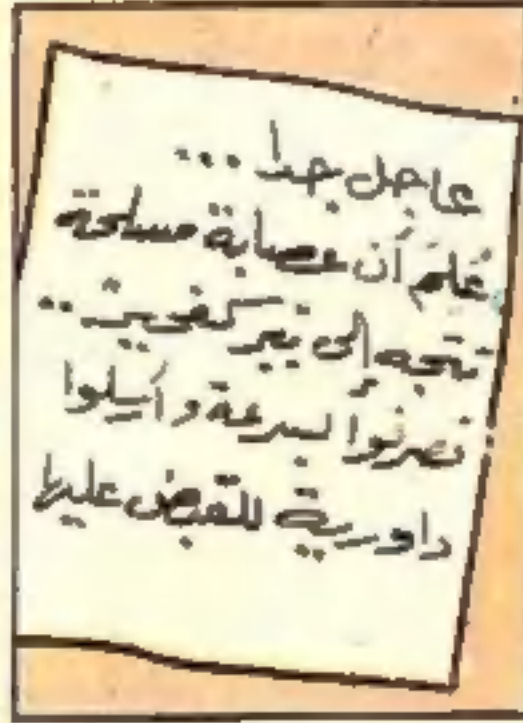 عاجل جدا ...
عُلِمَ أن عصابة مسلحة
تتجه إلى كفجين ..
تصرفوا بسرعة وأرسلوا
داورية للقبض عليها